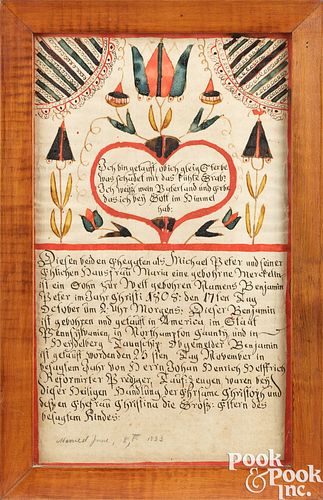 Ich bin getauft, ob ich gleich Sterbe
was schadet mir das kühle Grab?
Ich weiß mein Vaterland und erbe
das ich bey Gott im Himmel
hab:
Diesen beiden Eheggten als Michael Peter und seiner
Ehlichen Hausfrau Maria eine gebohrne Merckeln
ist ein Sohn zur Welt gebohren Namens Benjamin
Peter im Jahr Christi 1808: den 17ten Tag
October um 2 Uhr Morgens: Dieser Benjamin
ist gebohren und getauft in America im Staat
Pennsylvanien, in Northamton Caunty und in
Heydelberg Taunschip. Obgemelder Benjamin
ist getauft worden den 20sten Tag November in
besagtem Jahr von Herrn Johan Henrich Helffrich
Reformirter Prediger, Taufzeugen waren bey
dieser Heiligen Handlung der Ehrsame Christoph und
dessen Ehefrau Christina die Groß-Eltern des
besagten Kindes:
Married June, 1833
Pook &
Pook Inc.